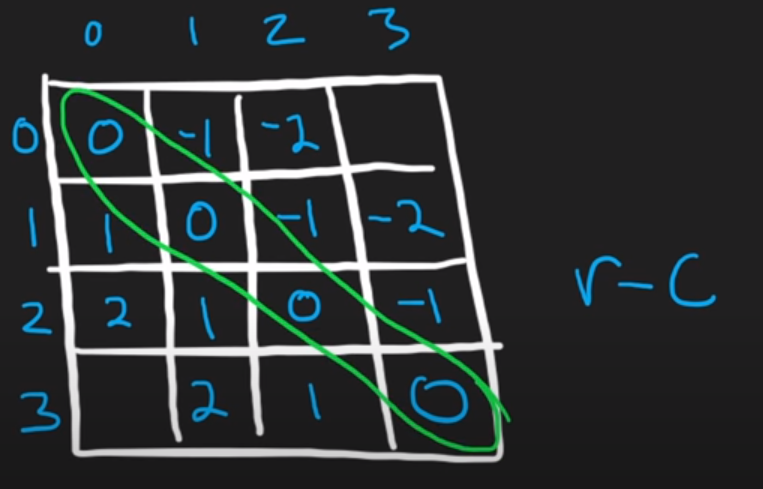 0 1 2 3
0 0 -1 -2
1 1 0 -1 -2
2 2 1 0 -1
3 2 1 0
r-c